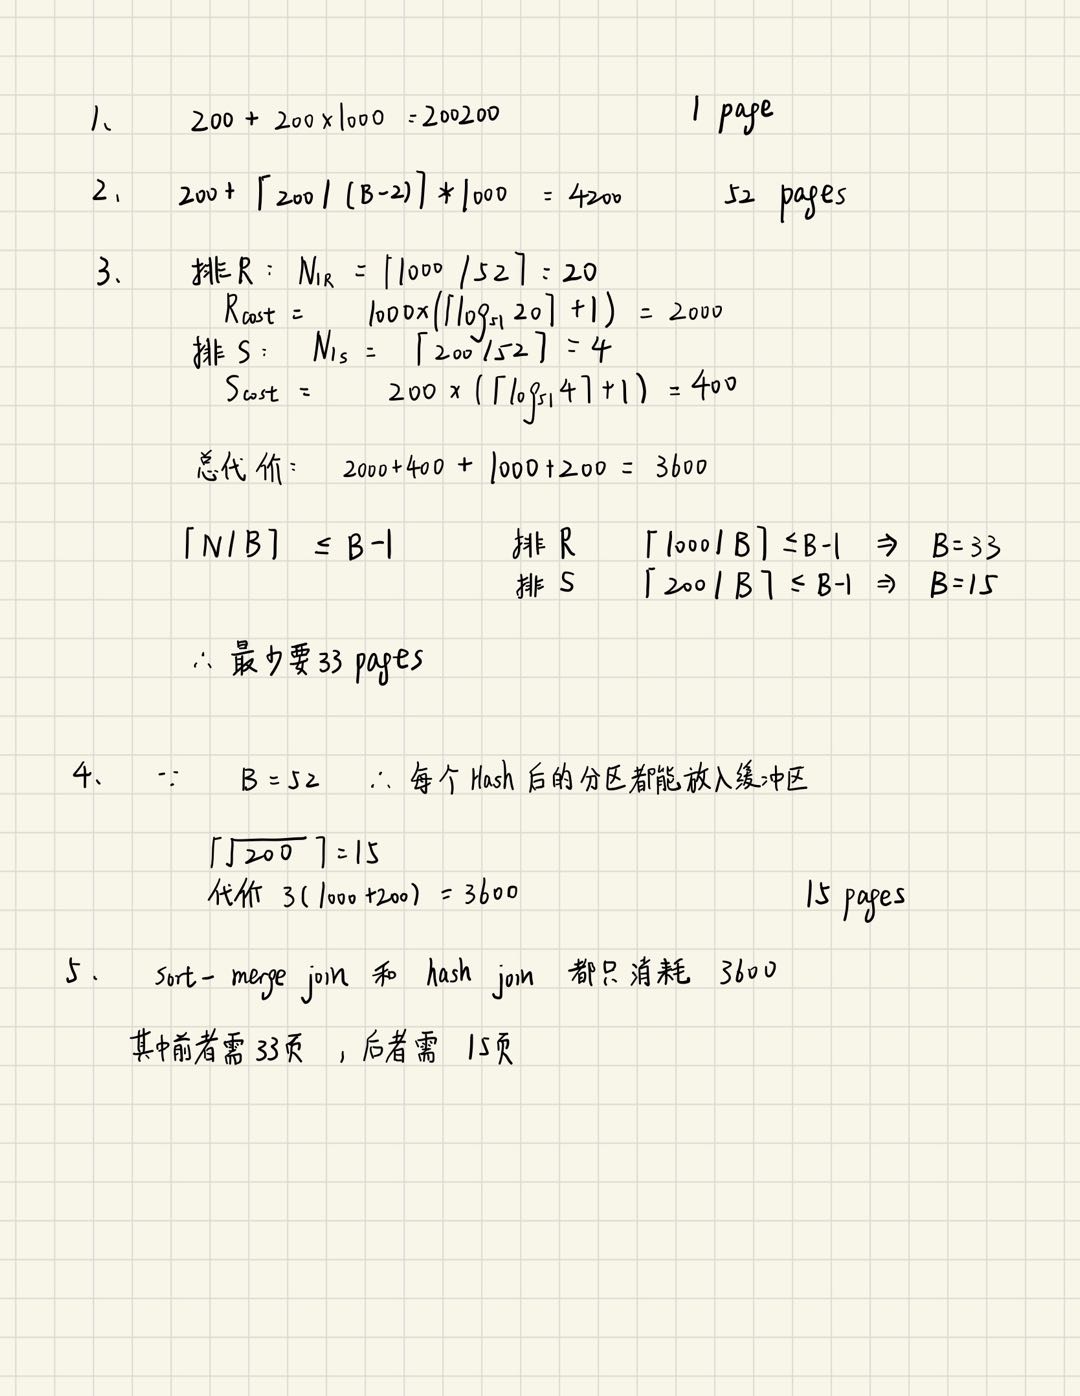 1、 200 + 200×1000 = 200200 1 page
2、 200+ ⌈200 / (B-2)⌉ * 1000 = 4200 52 pages
3、 排R： N1R = ⌈1000 / 52⌉ = 20
Rcost = 1000×(⌈log51 20⌉ +1) = 2000
排S： N1s = ⌈200 / 52⌉ = 4
Scost = 200 × (⌈log51 4⌉+1) = 400
总代价： 2000+400 + 1000+200 = 3600
⌈N/B⌉ ≤ B-1 排 R ⌈1000/B⌉ ≤B-1 ⇒ B=33
排 S ⌈200/B⌉ ≤ B-1 ⇒ B=15
∴ 最少要33 pages
4、 ∵ B=52 ∴ 每个Hash后的分区都能放入缓冲区
⌈√200⌉=15
代价 3(1000+200) = 3600 15 pages
5、 sort-merge join 和 hash join 都只消耗 3600
其中前者需33页 ，后者需 15页